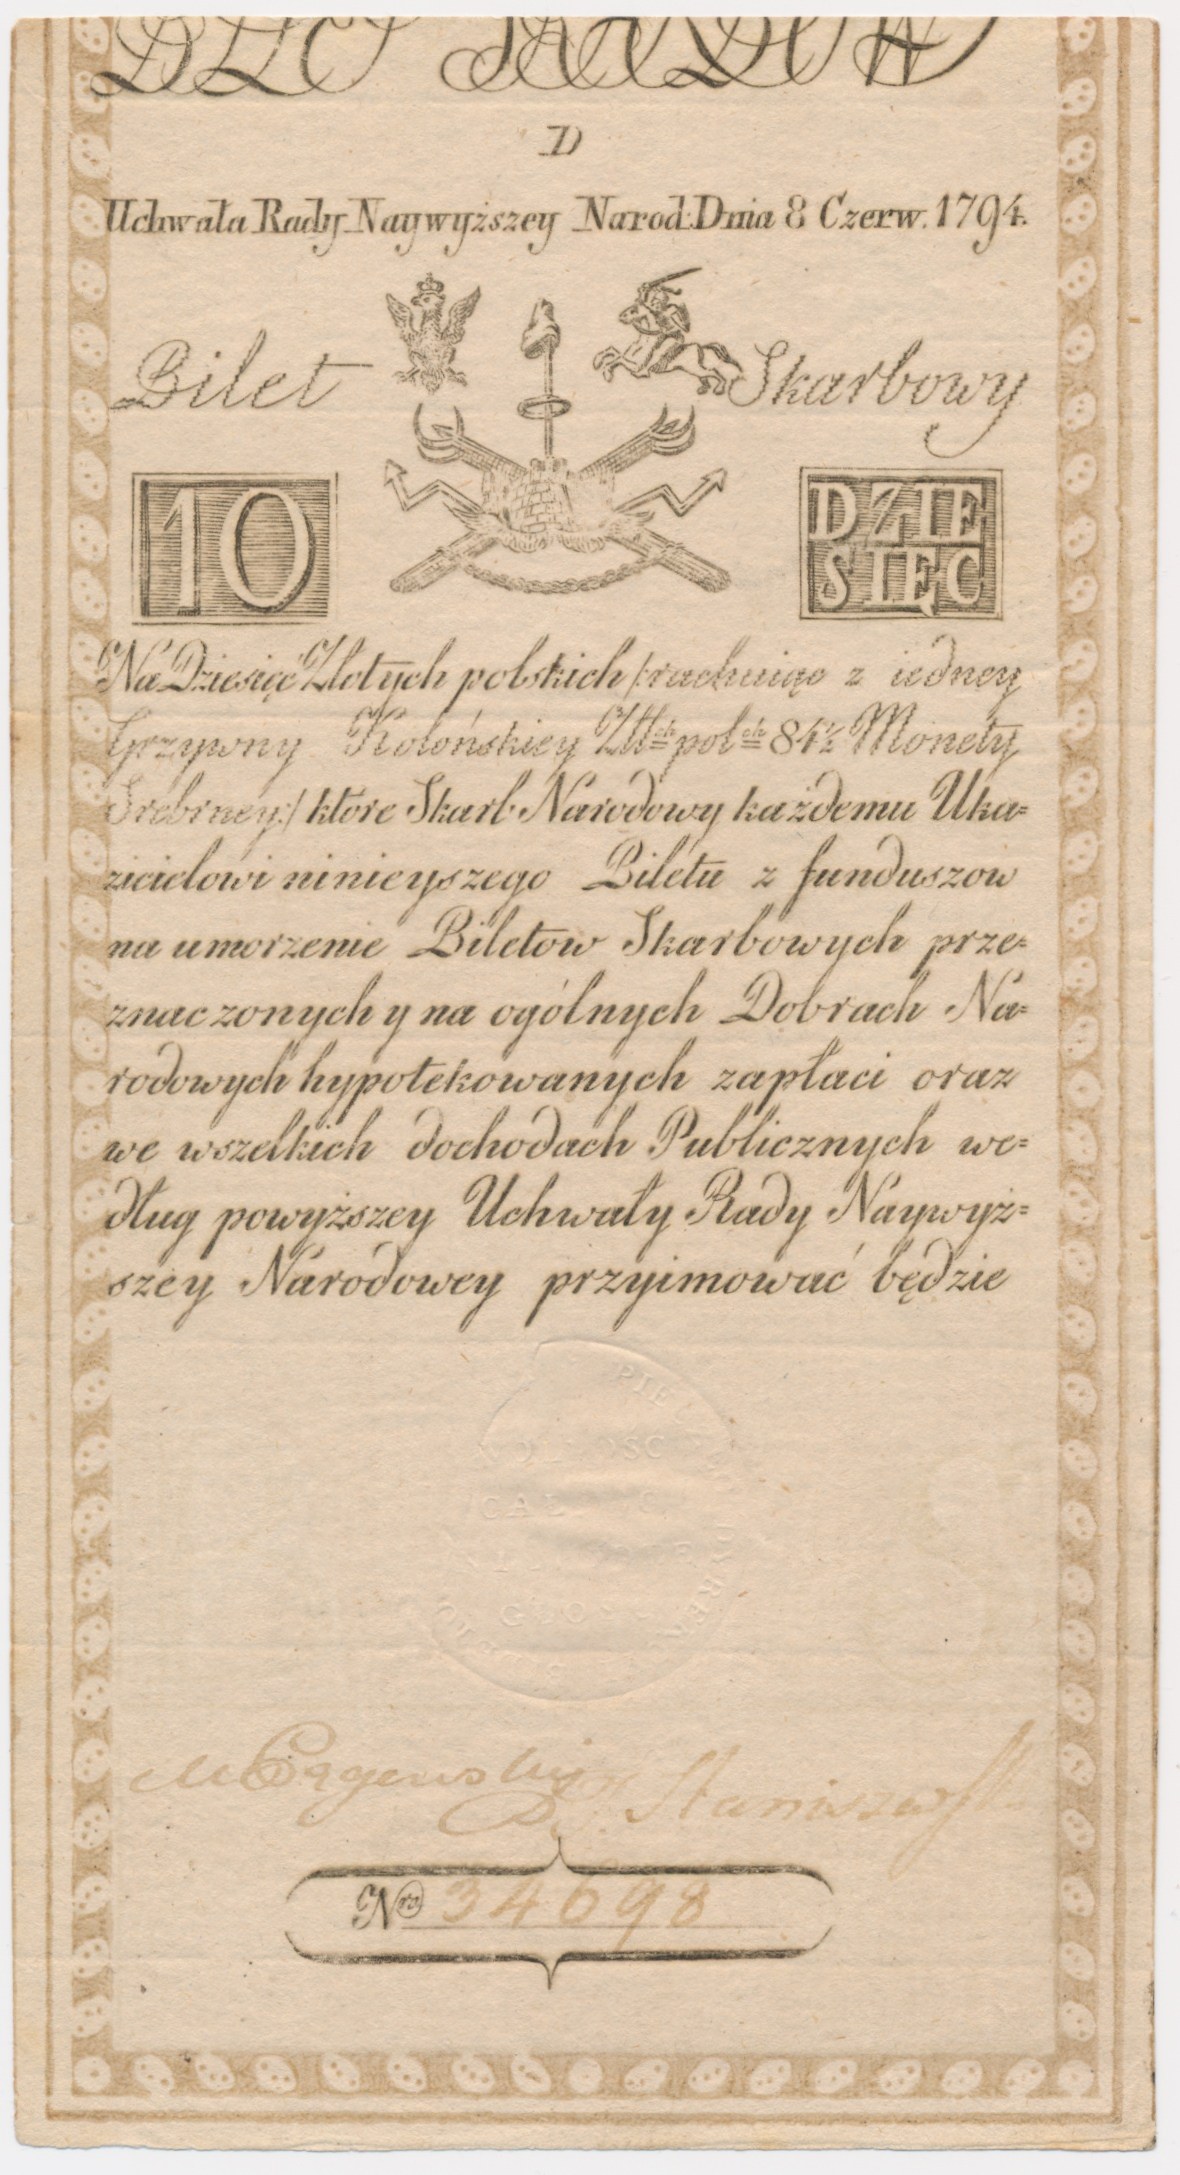 D
Uchwała Rady Naywyższey Narod: Dnia 8 Czerw. 1794.
Bilet Skarbowy
10 DZIE
SIĘC
Na Dziesięć Złotych polskich /:rachuiąc z iedney
Grzywny Kolońskiey Złł.ch pol.ch 84½ Monety
Srebrney:/ ktore Skarb Narodowy każdemu Uka=
zicielowi ninieyszego Biletu z funduszow
na umorzenie Biletow Skarbowych prze=
znaczonych y na ogólnych Dobrach Na=
rodowych hypotekowanych zapłaci oraz
we wszelkich dochodach Publicznych we=
dług powyższey Uchwały Rady Naywyż=
szey Narodowey przyimować będzie
WOLNOSC
CAŁOSC
Staniszewski
Nro 34698